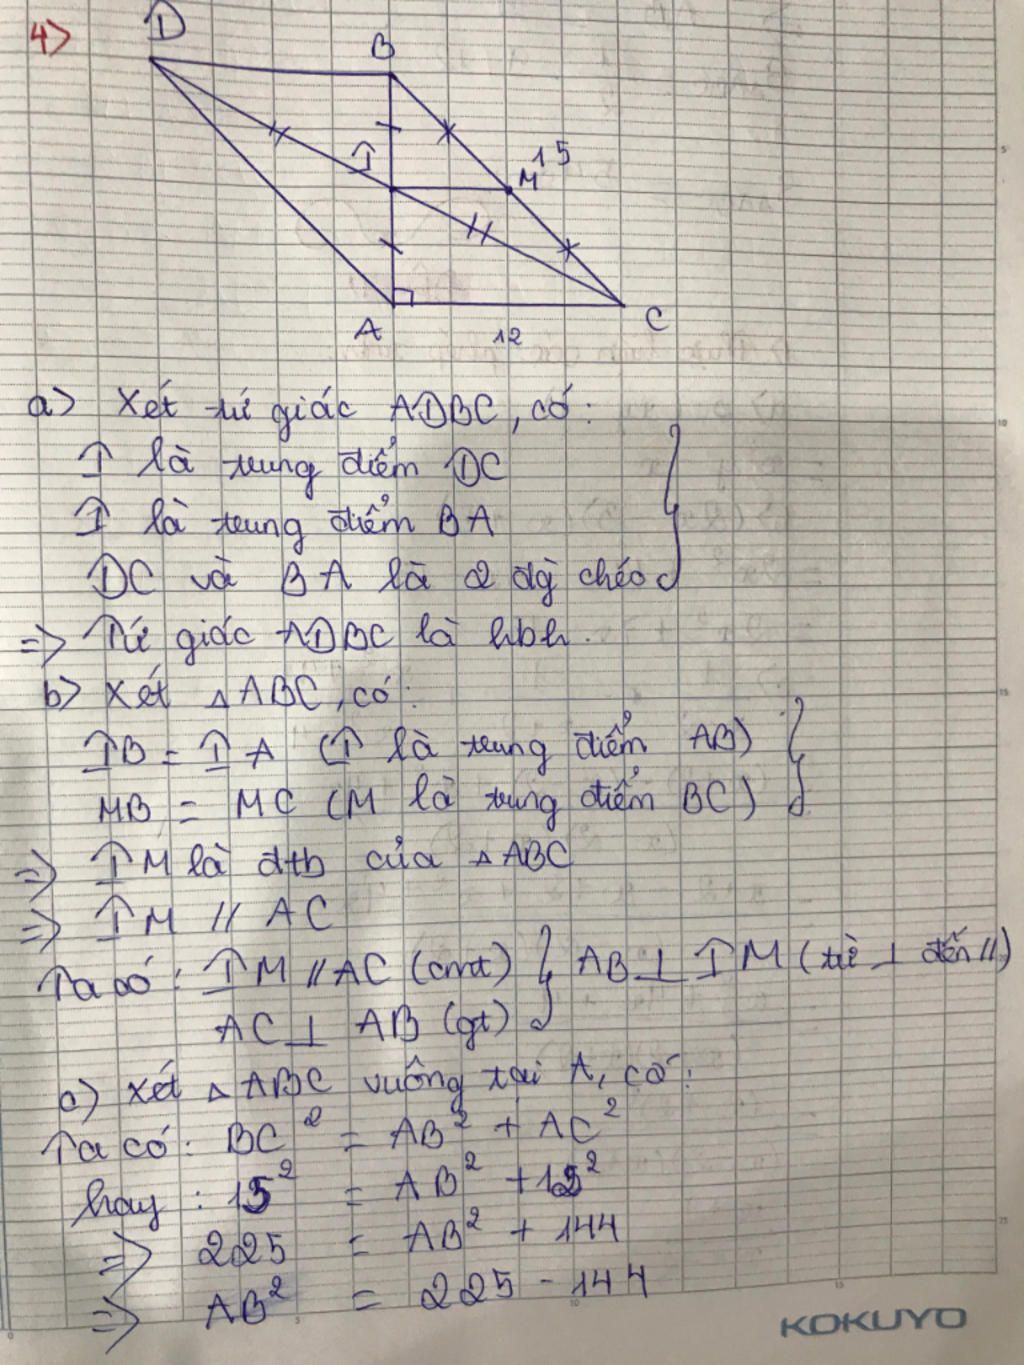 4>
D
B
I
M
15
A
C
12
a> Xét tứ giác ADBC, có:
I là trung điểm DC
I là trung điểm BA
DC và BA là 2 đg chéo
=> Tứ giác ADBC là hbh.
b> Xét △ABC, có:
IB = IA (I là trung điểm AB)
MB = MC (M là trung điểm BC)
=> IM là đtb của △ABC
=> IM // AC
Ta có: IM // AC (cmt) } AB ⊥ IM (từ ⊥ đến //)
AC ⊥ AB (gt)
c) Xét △ABC vuông tại A, có:
Ta có: BC² = AB² + AC²
hay: 15² = AB² + 12²
=> 225 = AB² + 144
=> AB² = 225 - 144
KOKUYO